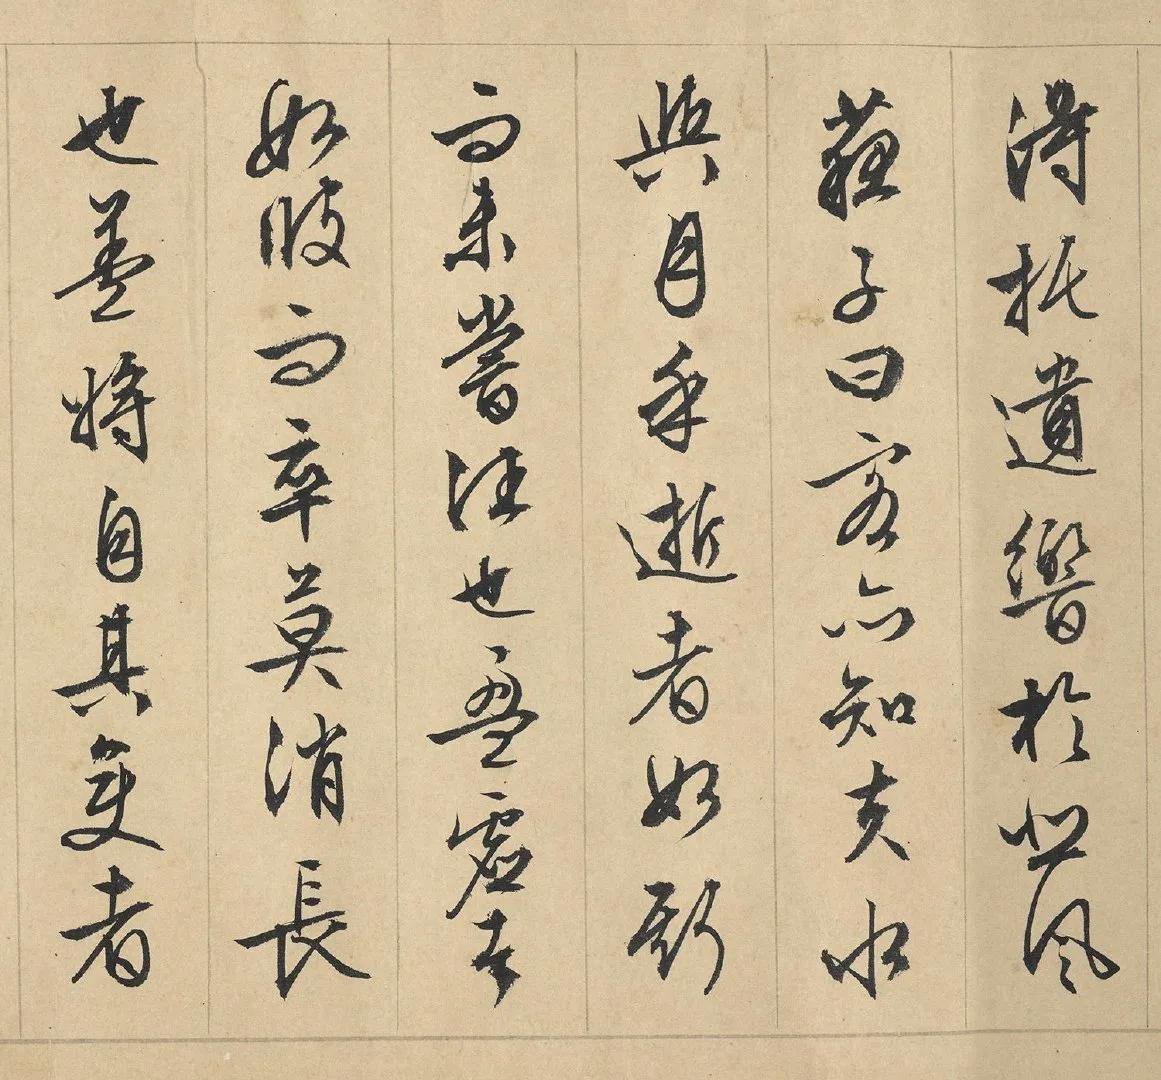 得托遺響於悲風
蘇子曰客亦知夫水
與月乎逝者如斯
而未嘗往也盈虛者
如彼而卒莫消長
也蓋將自其變者